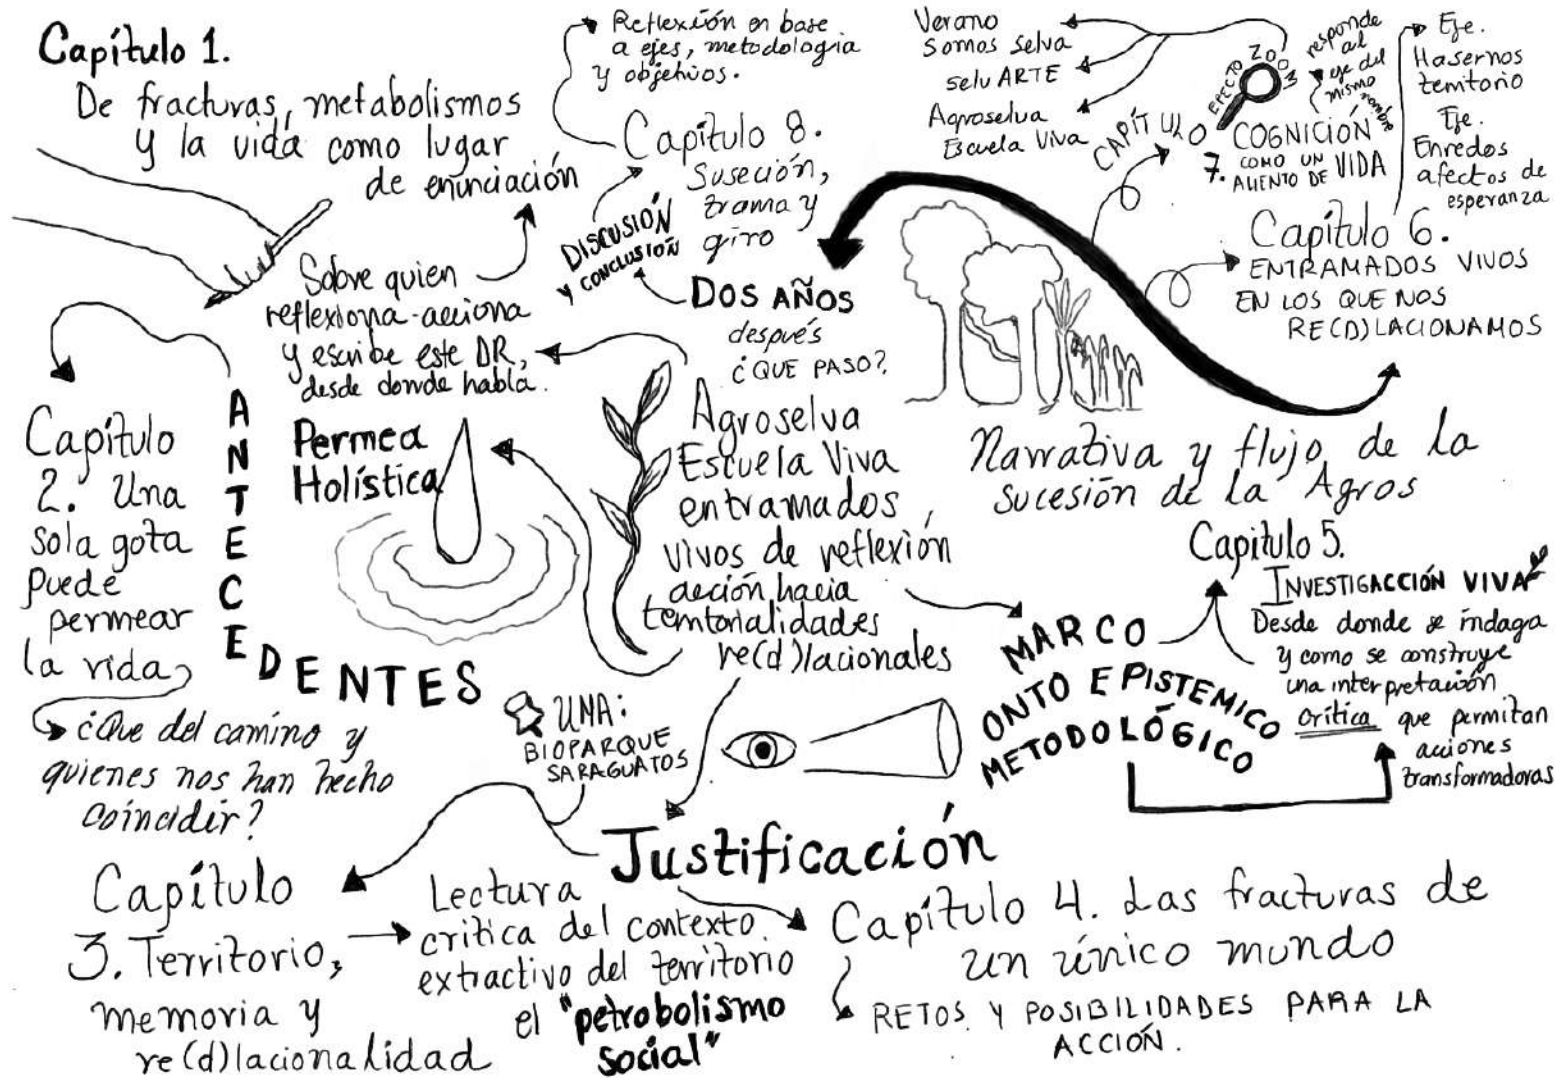 Capítulo 1.
De fracturas, metabolismos
y la vida como lugar
de enunciación
Reflexión en base
a ejes, metodología
y objetivos.
Capítulo 8.
Suseción,
trama y
giro
DISCUSIÓN
Y CONCLUSIOÑ
DOS AÑOS
después
¿QUE PASO?
Verano
Somos selva
selvARTE
Agroselva
Escuela Viva
CAPÍTULO
7.
EFECTO ZOOM
COGNICIÓN
COMO UN
ALIENTO DE VIDA
responde
al
eje del
mismo
nombre
Eje.
Hasernos
territorio
Eje.
Enredos
afectos de
esperanza
Capítulo 6.
ENTRAMADOS VIVOS
EN LOS QUE NOS
RE(D)LACIONAMOS
Sobre quien
reflexiona-acciona
y escribe este DR,
desde donde habla.
ANTECEDENTES
Capítulo
2. Una
sola gota
puede
permear
la vida
¿Que del camino y
quienes nos han hecho
coincidir?
Permea
Holística
Agroselva
Escuela Viva
entramados
vivos de reflexión
acción hacia
territorialidades
re(d)lacionales
Narrativa y flujo de la
sucesión de la Agros
MARCO
ONTO EPISTEMICO
METODOLÓGICO
Capitulo 5.
INVESTIGACCIÓN VIVA
Desde donde se indaga
y como se construye
una interpretación
crítica que permitan
acciones
transformadoras
UNA:
BIOPARQUE
SARAGUATOS
Justificación
Capítulo
3. Territorio,
memoria y
re(d)lacionalidad
Lectura
critica del contexto
extractivo del territorio
el "petrobolismo
social"
Capítulo 4. Las fracturas de
un único mundo
RETOS Y POSIBILIDADES PARA LA
ACCIÓN.